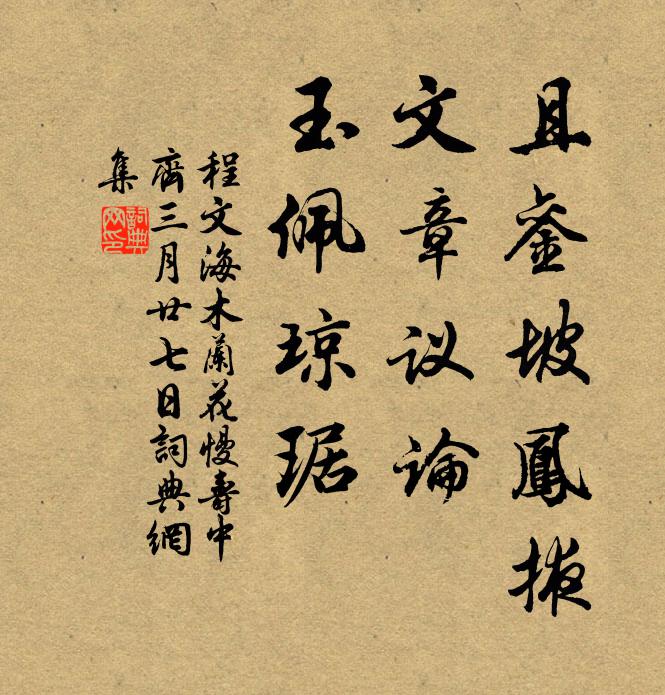 且銮坡鳳掖
文章议论
玉佩琼琚
程文海木蘭花慢壽中
齊三月廿七日詞典網
集
詞典
网印